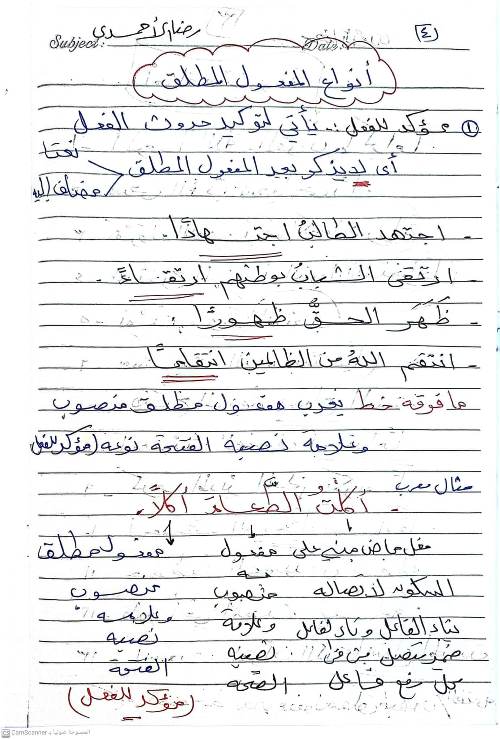 ٤
رضا الأحمدي
Subject: Date:
أنواع المفعول المطلق
① مؤكد للفعل :. يأتي لتوكيد حدوث الفعل
أى لا يذكر بعد المفعول المطلق
نعتا
مضاف إليه
- اجتهد الطالبُ اجتهادًا.
- ارتقى الشبابُ بوطنهم ارتقاءً.
- ظَهَر الحقُّ ظهورًا.
- انتقم اللهُ من الظالمين انتقامًا
ما فوقه خط يعرب مفعول مطلق منصوب
وعلامة نصبه الفتحة نوعه (مؤكد للفعل
مثال معرب
- أكلت الطَّعامَ أكلًا.
فعل ماض مبني على مفعول مفعول مطلق
به
السكون لاتصاله منصوب منصوب
بتاء الفاعل وتاء الفاعل وعلامة وعلامة
ضمير متصل في نصبه نصبه
محل رفع فاعل الفتحة الفتحة
(مؤكد للفعل)
CamScanner